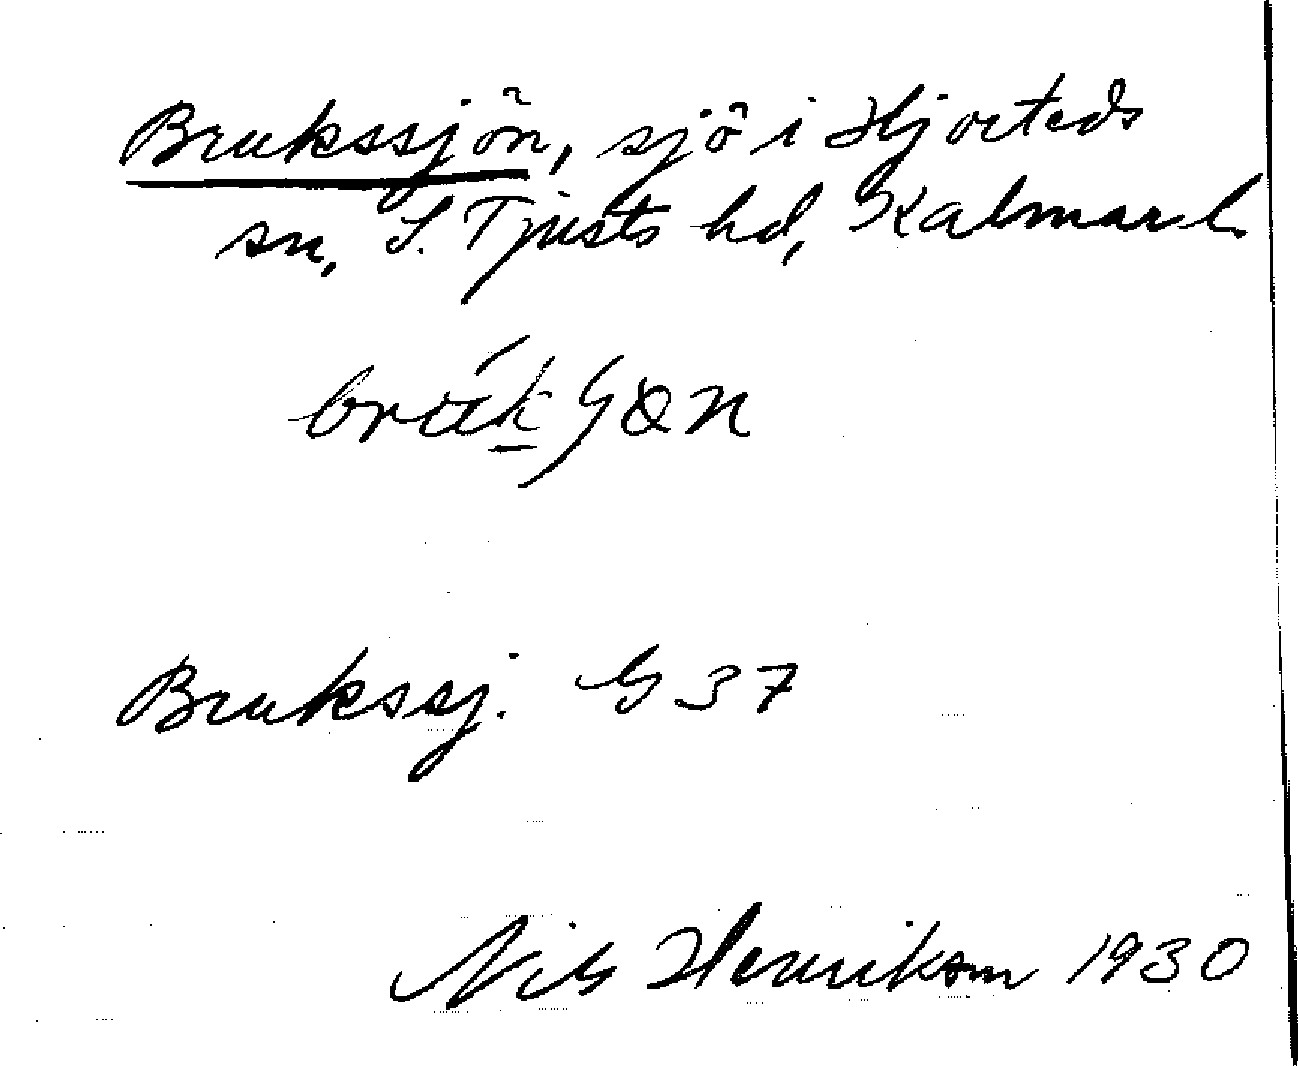 Brukssjön, sjö i Hjorteds
sn, S. Tjusts hd, Kalmar l.
Brukssj. G 37
Nils Henrikson 1930